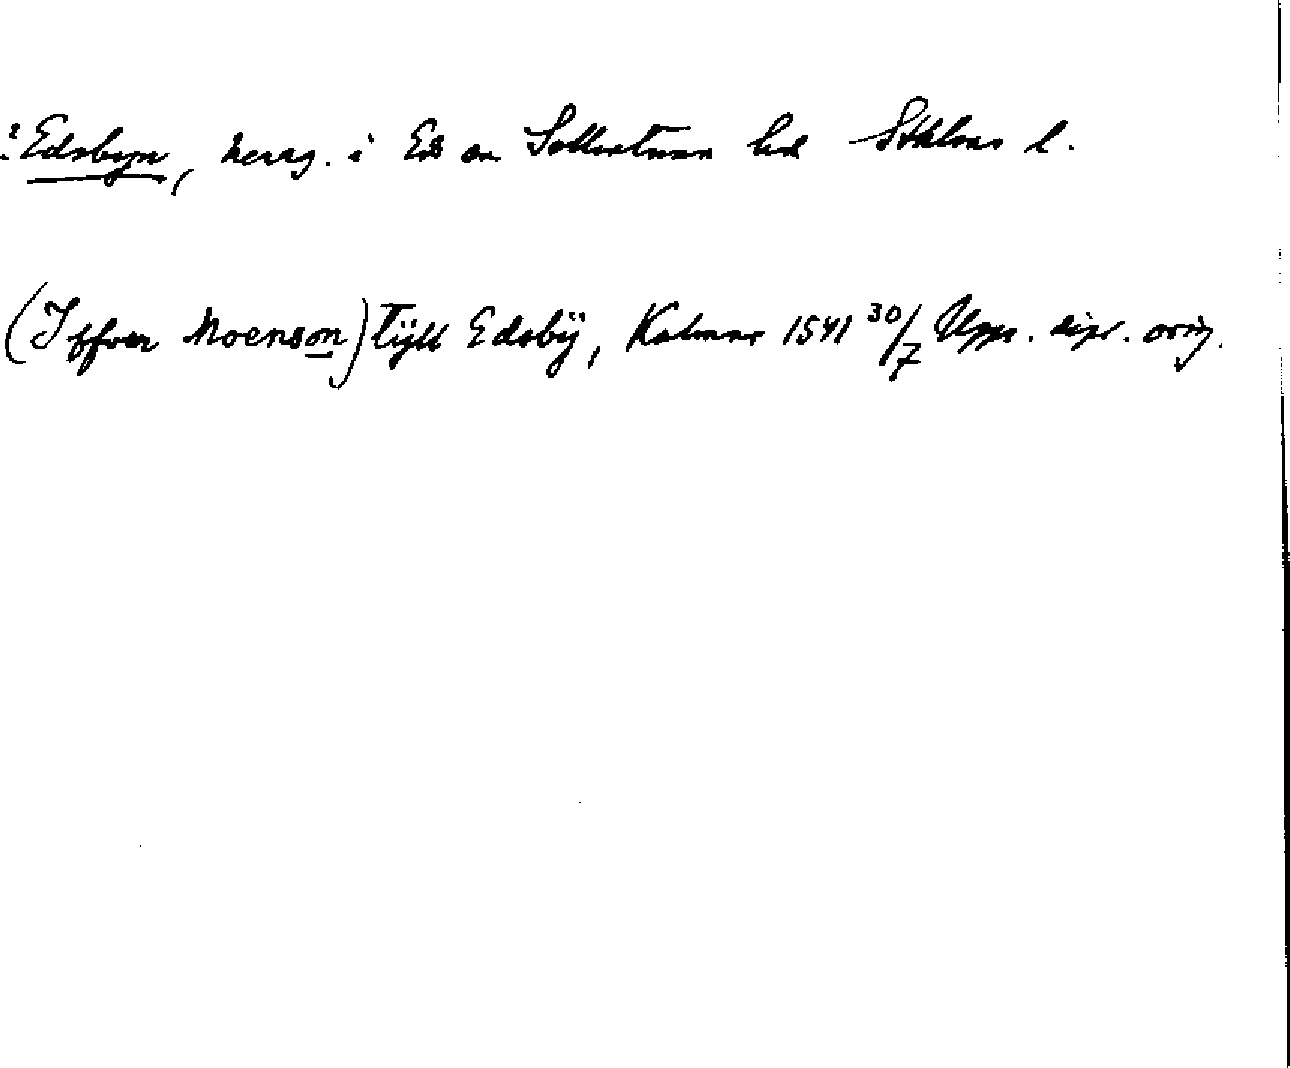 ? Edsbyn, herrg. i Ed sn Sollentuna hd Sthlms l.
(Iffver Moenson) tijll Edsbÿ, Kalmar 1541 30/7 Upps. dipl. orig.